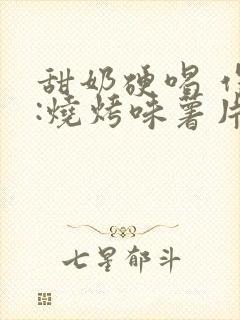 甜奶硬喝
:燒烤味薯片
七星郁斗